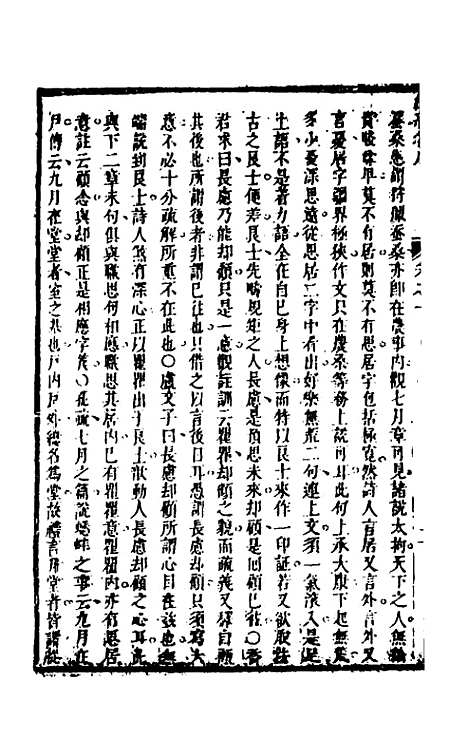 蚕桑愚謂狩獵蚕桑亦即在農事內觀七月章可見諸說太拘天下之人無論
貴賤早莫不有居則莫不有思居字包括極寬然詩人言居又言外言外又
言憂居字疆界極狹作文只在農桑等務上說可耳此句上承大康下起無荒
多少憂深思遠從思居二字中看出好樂無荒二句連上文須一氣滾入是
上語不是著力語全在自已身上想像而特以良士來作一印証若又欲取法
古之良士便差良士先時規矩之人長慮是預思未來却顧是回顧已往〇
君求曰長慮乃能却顧只是一慮觀註訓云瞿瞿却顧之貌而疏義又釋自顧
其後也所謂後者非謂已往也只借之以言後日耳愚謂長慮却顧只須寫大
意不必十分疏解所重不在此也〇盧文子曰長慮却顧所謂心目在茲也無
端說到良士詩人煞有深心正以瞿瞿出于良士激動人長慮却顧之心耳此
與下二章末句俱與職思何相應職思其居內已有瞿瞿意瞿瞿內亦有思居
意註云顧念與却顧正是相應字義〇孔疏七月之篇說蟋蟀之事云九月在
戶傳云九月在堂堂者室之基也戶內戶外總名為堂故禮言升堂者皆謂從